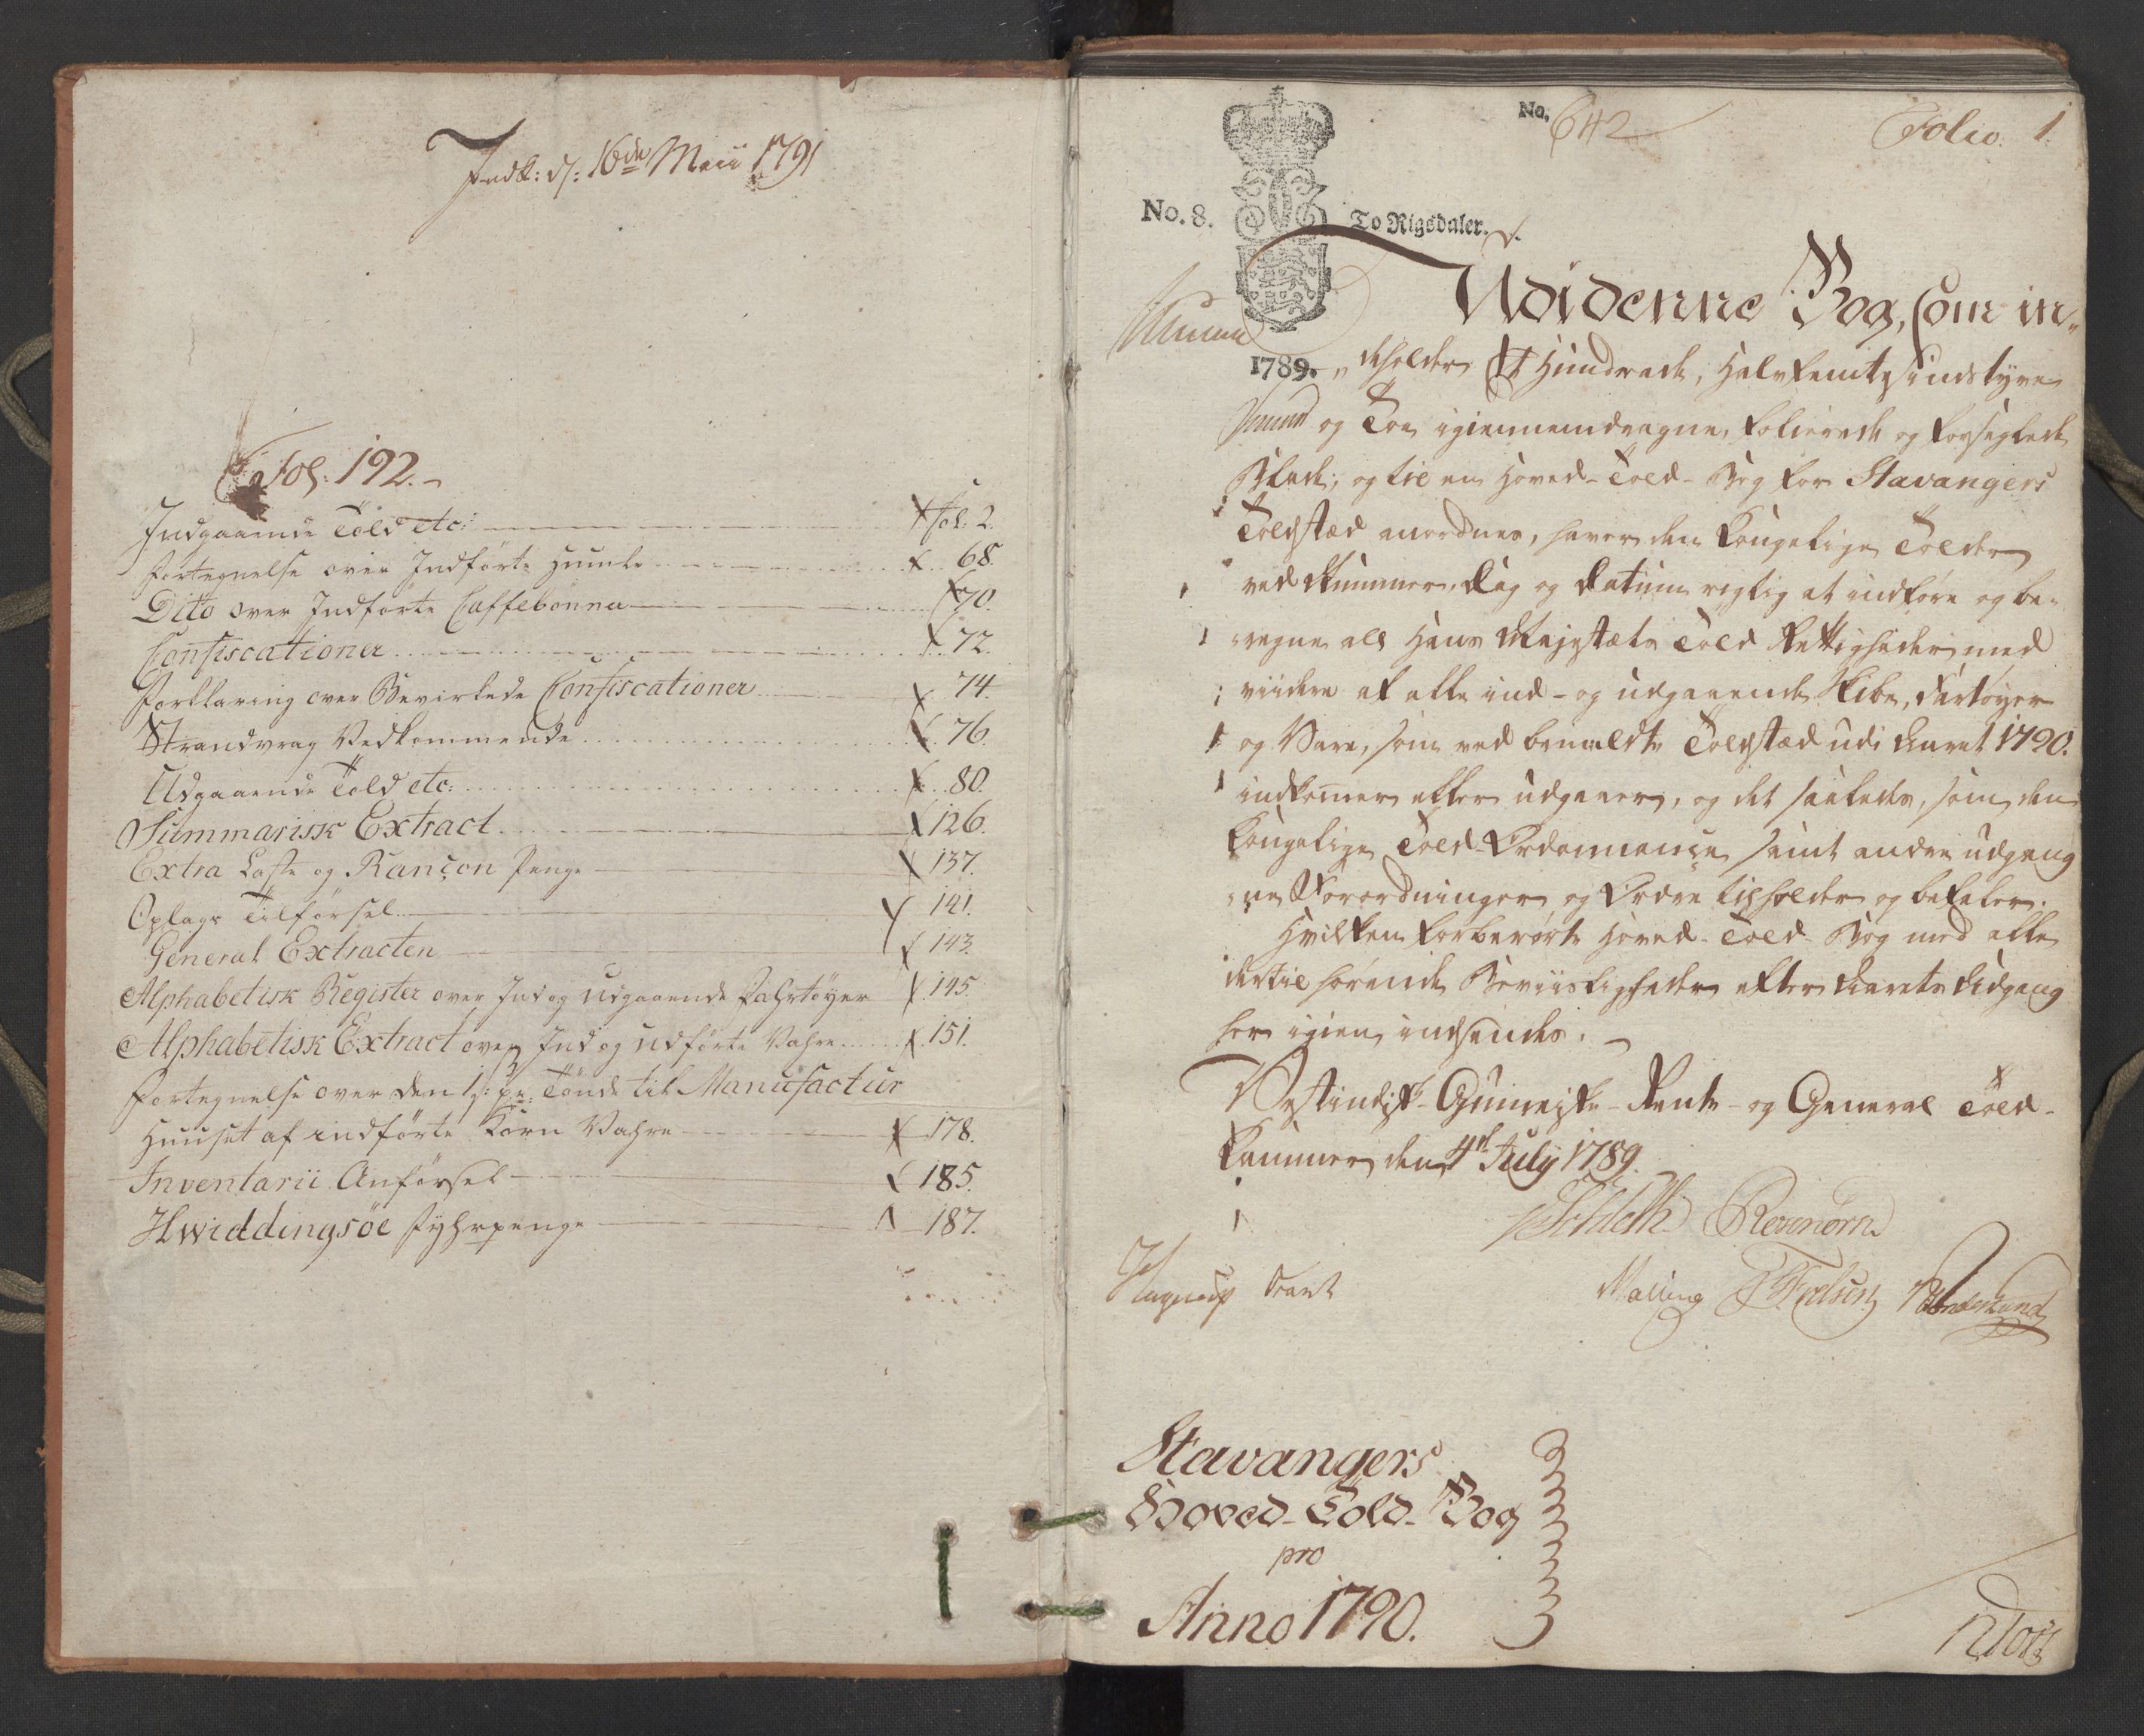 Indk: d: 16de Maii 1791
Fol: 192.
Indgaaende Told etc: Fol: 2.
Fortegnelse over Indførte Humle 68.
Dito over Indførte Caffebønner 70.
Confiscationer 72.
Forklaring over Bevirkede Confiscationer 74.
Strandvrag Vedkommende 76.
Udgaaende Told etc: 80.
Summarisk Extract 126.
Extra Laste og Rançon Penge 137.
Oplags Tilførsel 141.
General Extracten 143.
Alphabetisk Register over Ind og Udgaaende Fahrtøyer 145.
Alphabetisk Extract over Ind og Udførte Vahre 151.
Fortegnelse over den 1 s: pr: Tønde til Manufactur
Huuset af indførte Korn Vahre 178.
Inventarii Anførsel 185.
Hwiddingsöe Fyhrpenge 187.
No. 642
Folio. 1.
No. 8. To Rigsdaler.
Udi denne Bog, som in-
1789. deholder Et Hundrede, Halvfemtesindstyve
og Toe igiennemdragne, folierede og forseglede
Blade, og til en Hoved-Told-Bog for Stavangers
Toldstæd anordnes, haver den Kongelige Tolder
ved Nummer, Dag og Datum rigtig at indføre og be-
regne all Hans Majestæts Told Rettigheder med
viidere af alle ind- og udgaaende Skibe, Fartøyer
og Vare, som ved bemeldte Toldstæd udi Aaret 1790.
indkommer eller udgaaer, og det saaledes, som den
Kongelige Told-Ordonnance samt andre udgang-
ne Forordninger og Ordre tilholder og befaler.
Hvilken forberørte Hoved-Told-Bog med alle
dertil hørende Beviisligheder efter Aarets Udgang
her igien indsendes.
Vestindisk-Guineiske-Rente- og General Told-
Kammer den 4de July 1789.
Schleth Rosenørn
Malling
Stavangers
Hoved-Told-Bog
pro
Anno 1790.